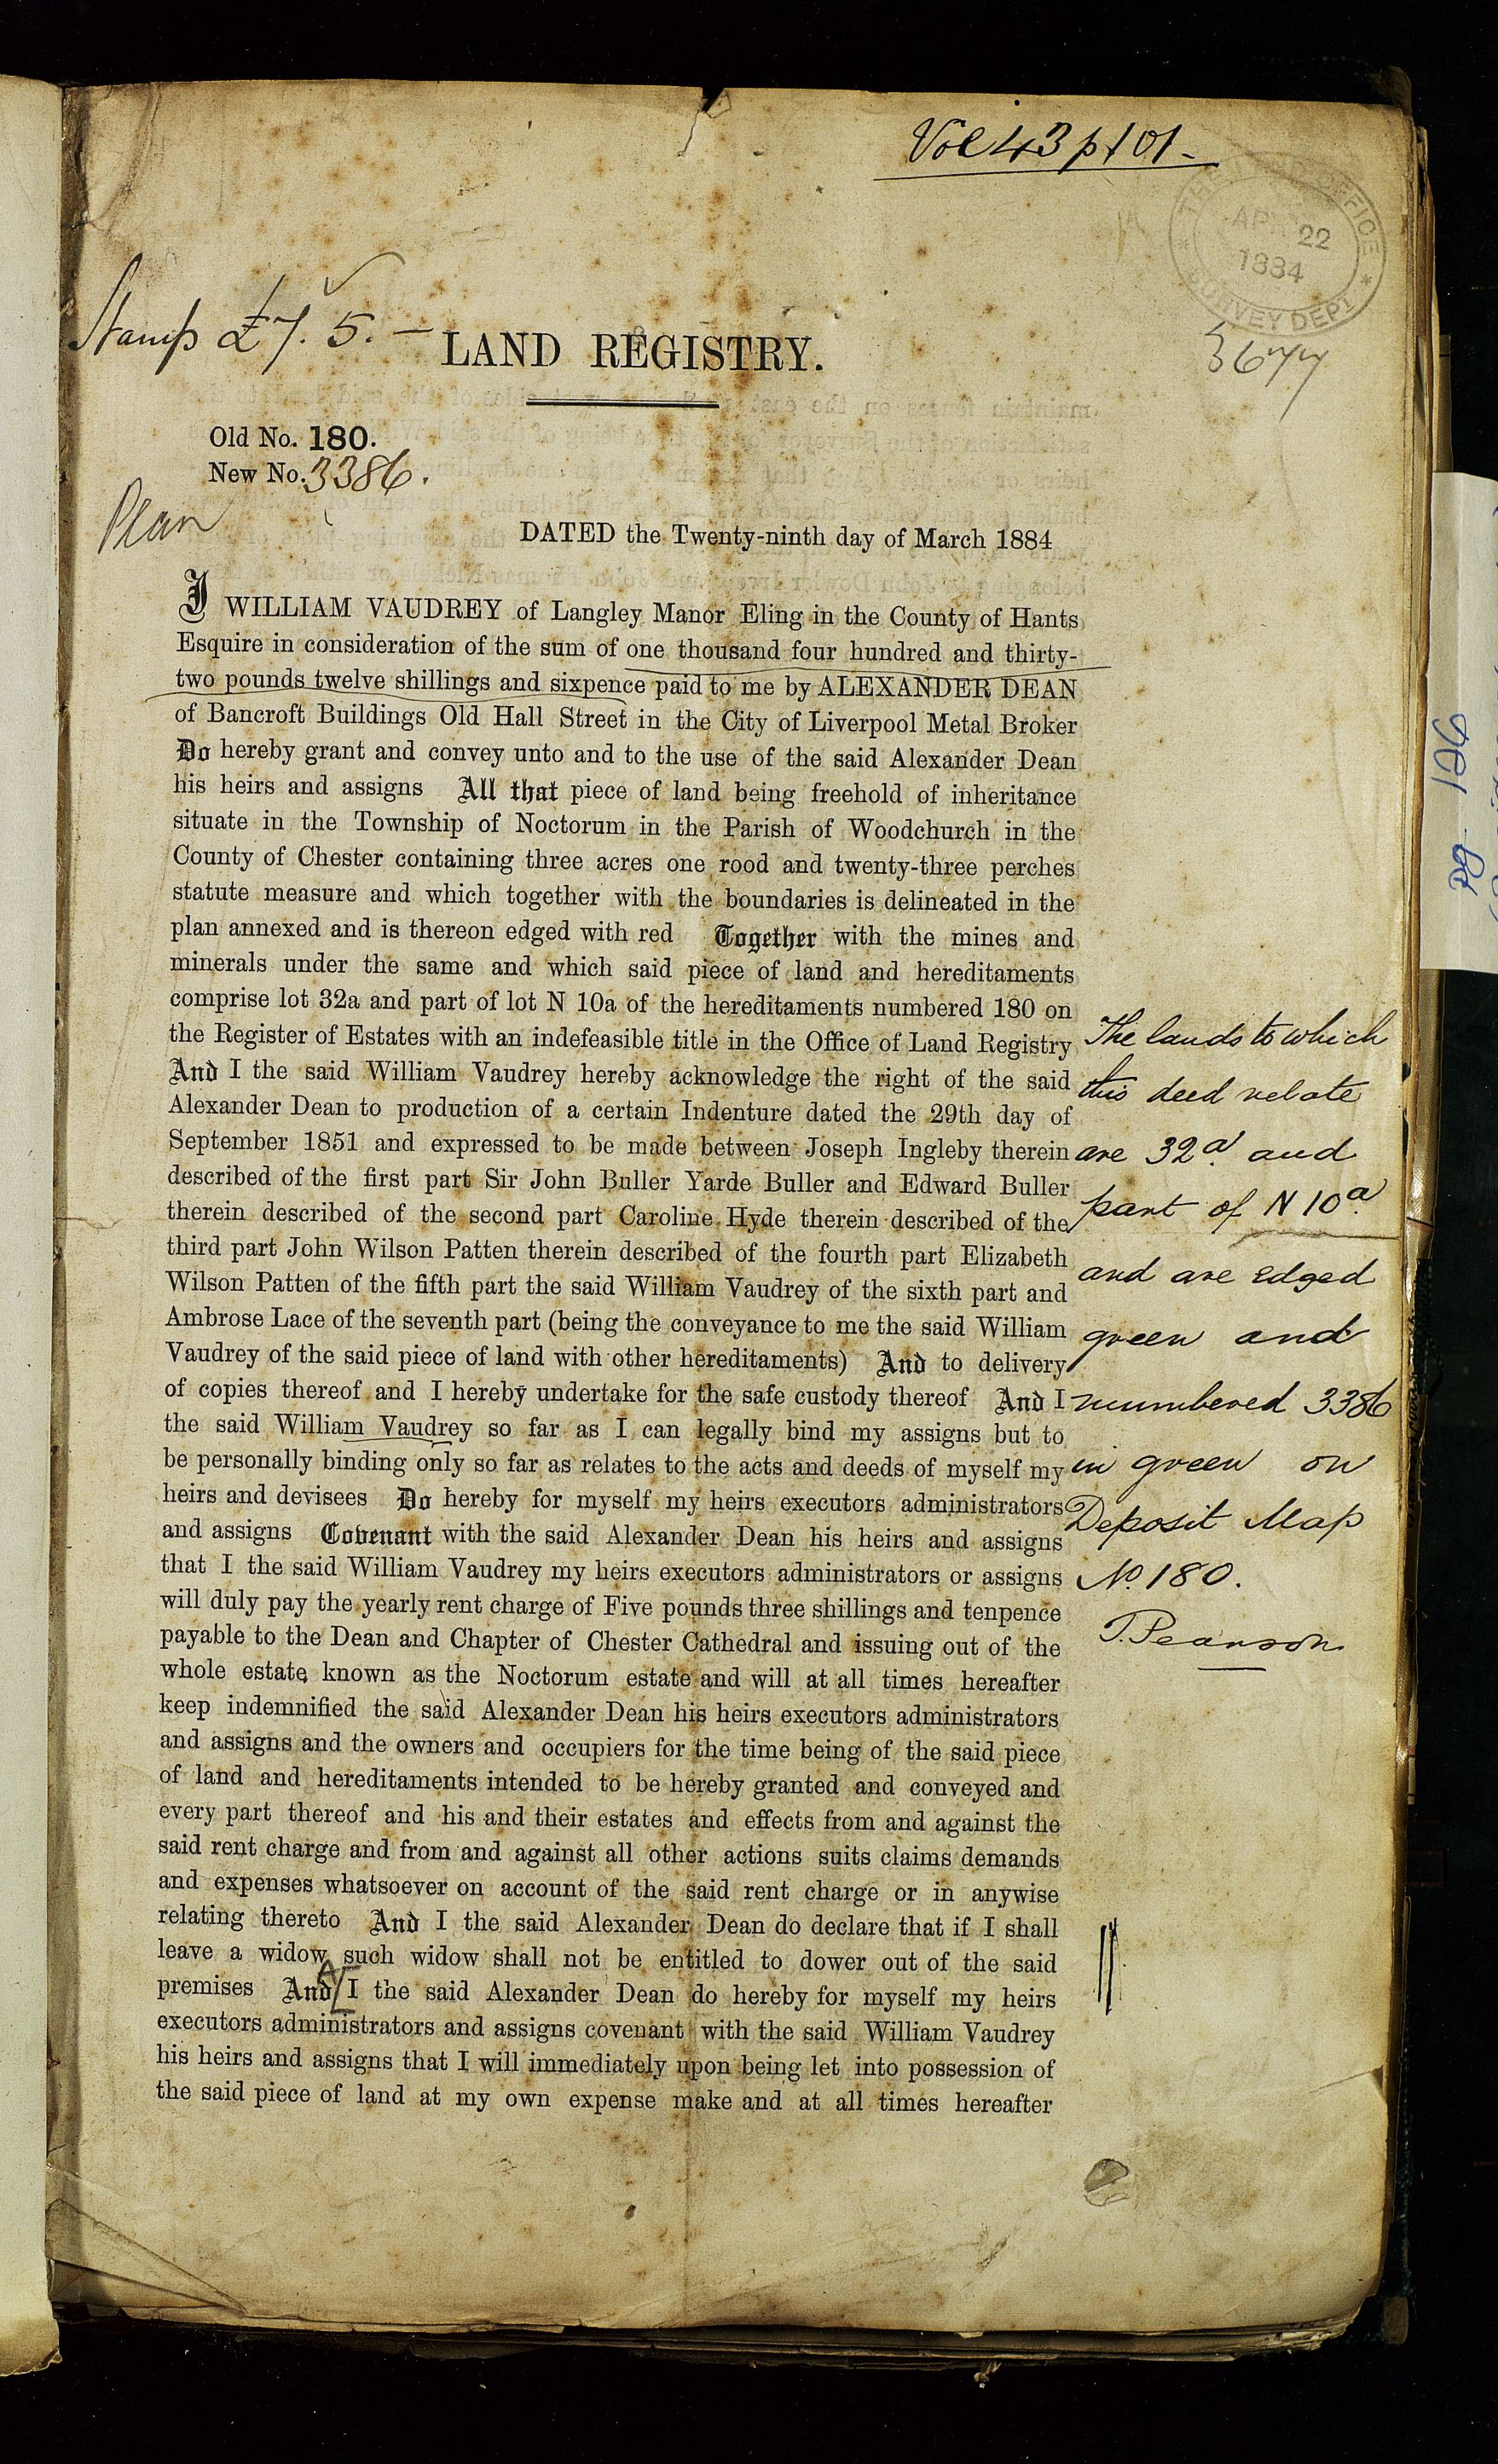 Vol 43 p 101-
APR 22
1884
SURVEY DEPT
Stamp £7. 5. -
LAND REGISTRY.
3677
Old No. 180.
New No. 3386.
Plan
DATED the Twenty-ninth day of March 1884
I WILLIAM VAUDREY of Langley Manor Eling in the County of Hants
Esquire in consideration of the sum of one thousand four hundred and thirty-
two pounds twelve shillings and sixpence paid to me by ALEXANDER DEAN
of Bancroft Buildings Old Hall Street in the City of Liverpool Metal Broker
Do hereby grant and convey unto and to the use of the said Alexander Dean
his heirs and assigns All that piece of land being freehold of inheritance
situate in the Township of Noctorum in the Parish of Woodchurch in the
County of Chester containing three acres one rood and twenty-three perches
statute measure and which together with the boundaries is delineated in the
plan annexed and is thereon edged with red Together with the mines and
minerals under the same and which said piece of land and hereditaments
comprise lot 32a and part of lot N 10a of the hereditaments numbered 180 on
the Register of Estates with an indefeasible title in the Office of Land Registry
And I the said William Vaudrey hereby acknowledge the right of the said
Alexander Dean to production of a certain Indenture dated the 29th day of
September 1851 and expressed to be made between Joseph Ingleby therein
described of the first part Sir John Buller Yarde Buller and Edward Buller
therein described of the second part Caroline Hyde therein described of the
third part John Wilson Patten therein described of the fourth part Elizabeth
Wilson Patten of the fifth part the said William Vaudrey of the sixth part and
Ambrose Lace of the seventh part (being the conveyance to me the said William
Vaudrey of the said piece of land with other hereditaments) And to delivery
of copies thereof and I hereby undertake for the safe custody thereof And I
the said William Vaudrey so far as I can legally bind my assigns but to
be personally binding only so far as relates to the acts and deeds of myself my
heirs and devisees Do hereby for myself my heirs executors administrators
and assigns Covenant with the said Alexander Dean his heirs and assigns
that I the said William Vaudrey my heirs executors administrators or assigns
will duly pay the yearly rent charge of Five pounds three shillings and tenpence
payable to the Dean and Chapter of Chester Cathedral and issuing out of the
whole estate known as the Noctorum estate and will at all times hereafter
keep indemnified the said Alexander Dean his heirs executors administrators
and assigns and the owners and occupiers for the time being of the said piece
of land and hereditaments intended to be hereby granted and conveyed and
every part thereof and his and their estates and effects from and against the
said rent charge and from and against all other actions suits claims demands
and expenses whatsoever on account of the said rent charge or in anywise
relating thereto And I the said Alexander Dean do declare that if I shall
leave a widow such widow shall not be entitled to dower out of the said
premises And I the said Alexander Dean do hereby for myself my heirs
executors administrators and assigns covenant with the said William Vaudrey
his heirs and assigns that I will immediately upon being let into possession of
the said piece of land at my own expense make and at all times hereafter
The lands to which
this deed relate
are 32a and
part of N 10a
and are edged
green and
numbered 3386
in green on
Deposit Map
No. 180.
T. Pearson
pg 126